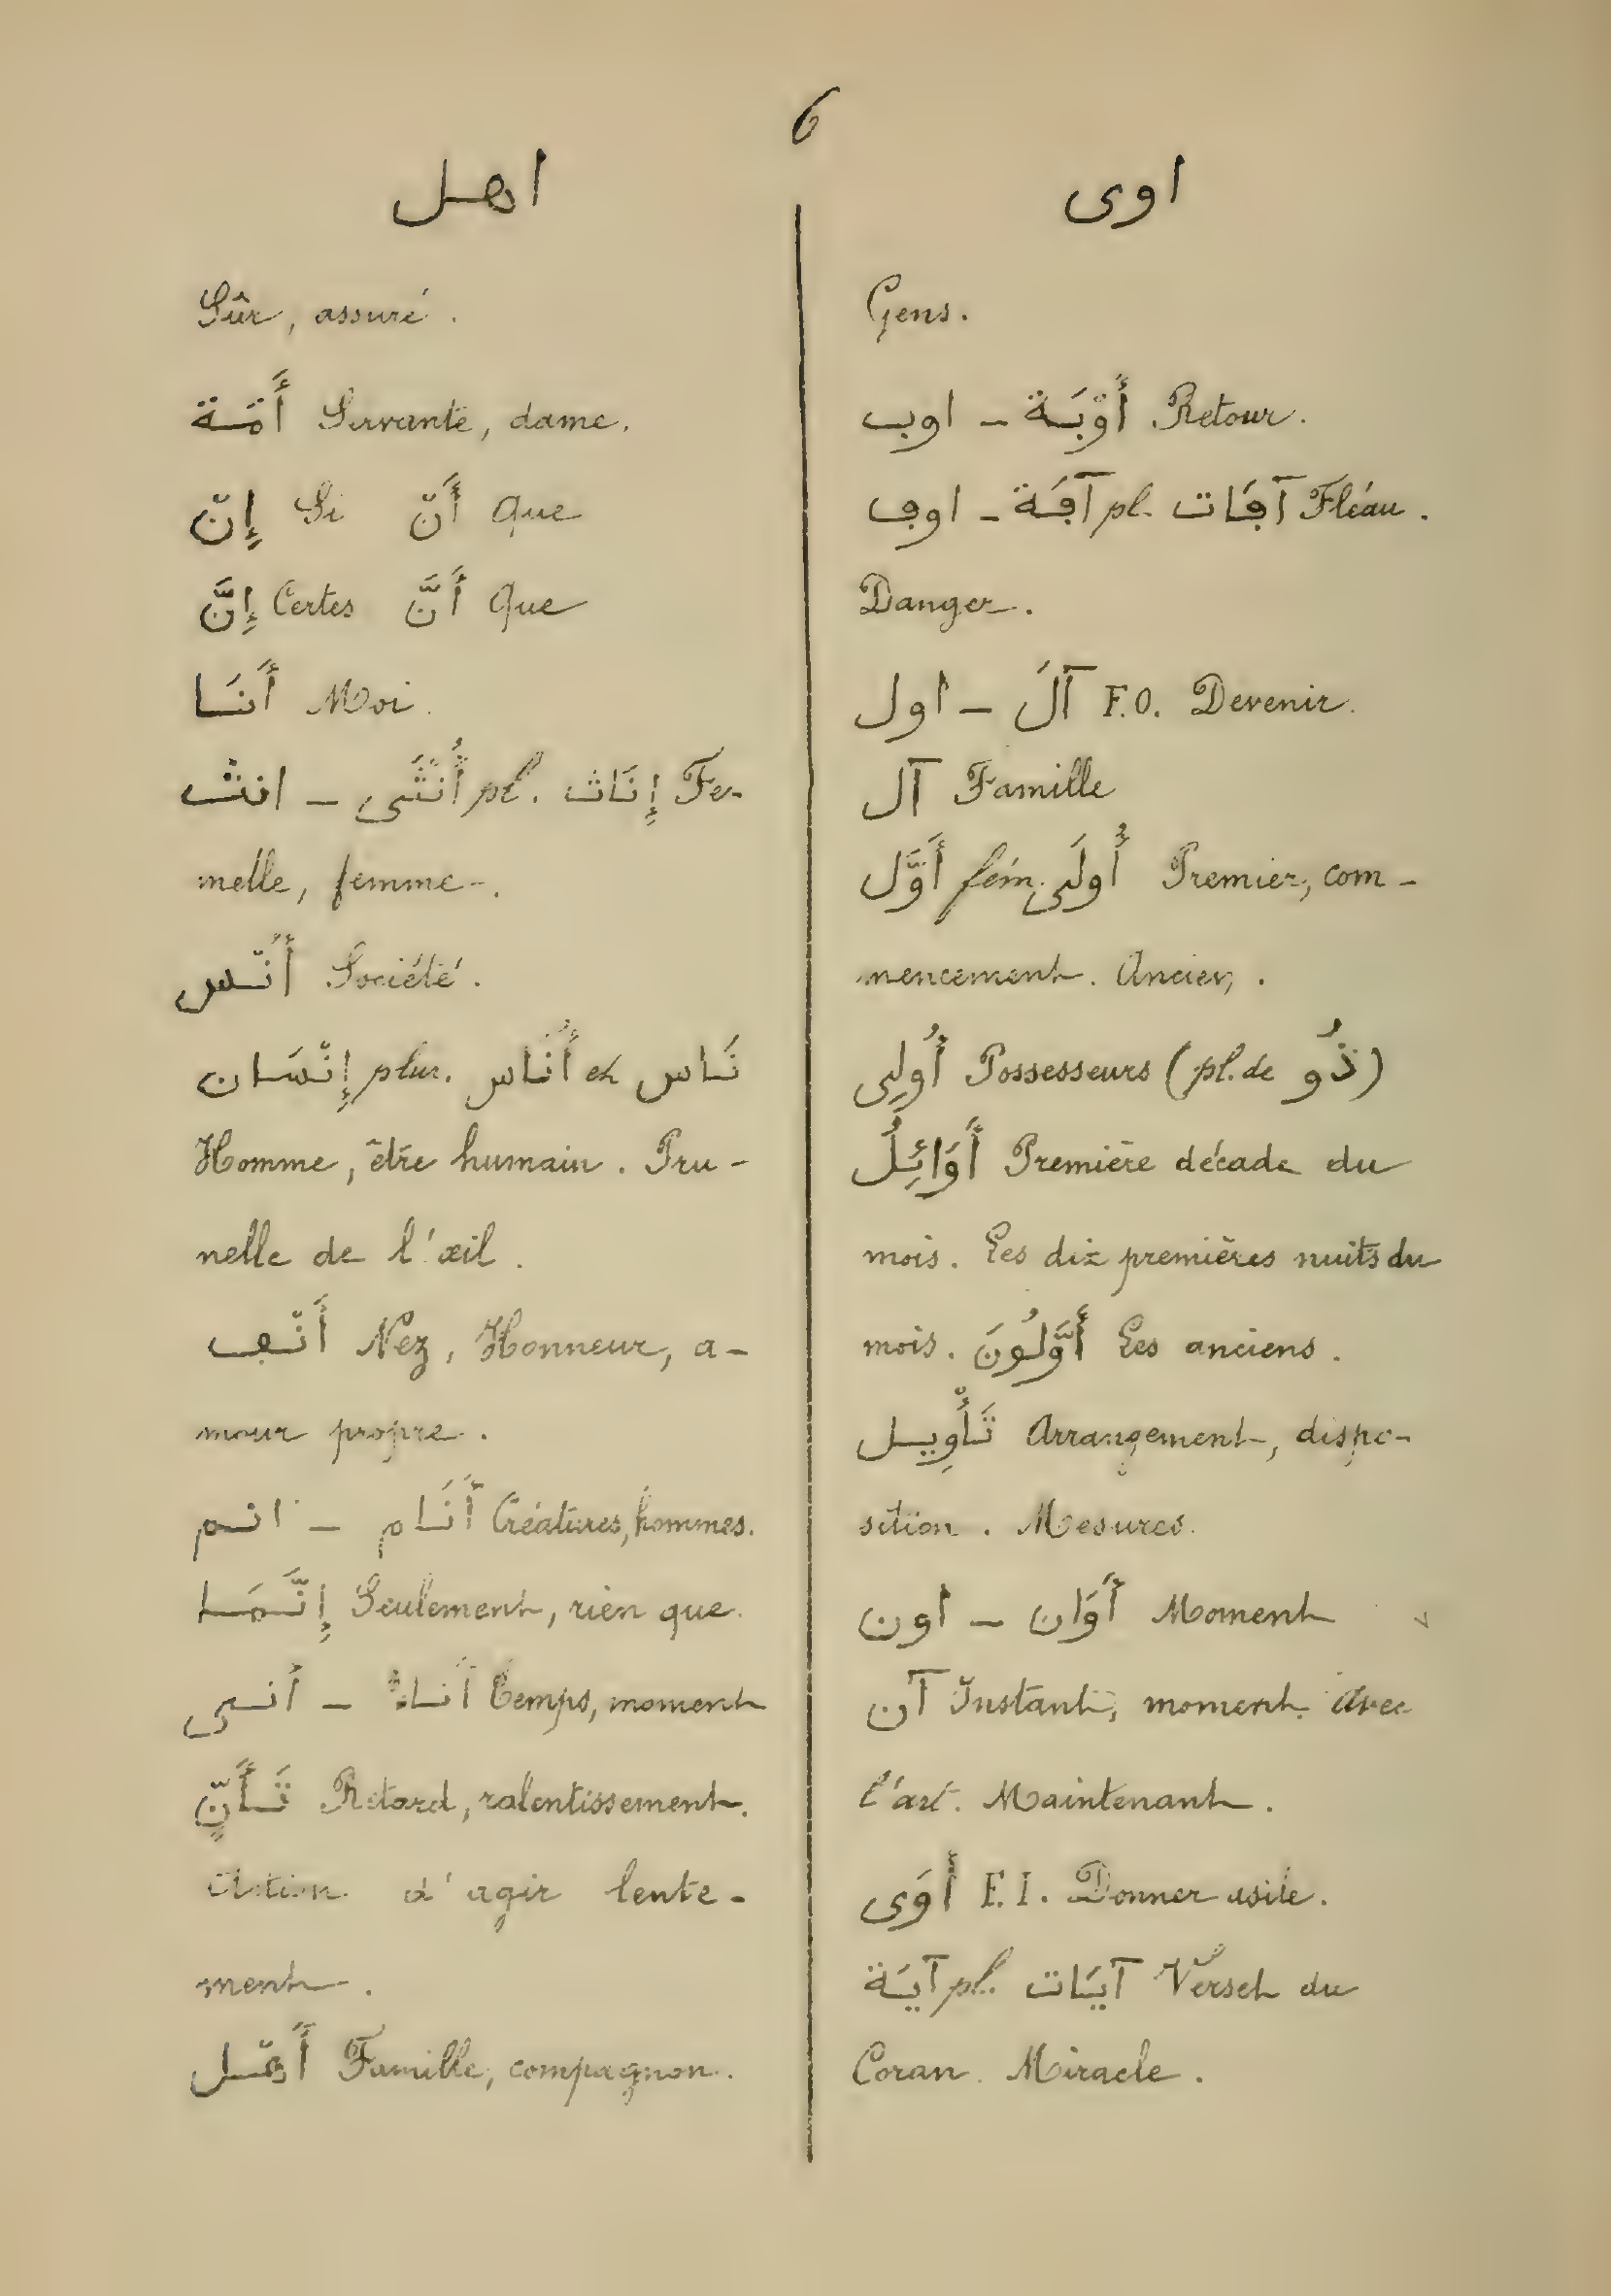 6
اهل
Sûr, assuré.
أَمَة Servante, dame.
إِنْ Si أَنْ Que
إِنَّ Certes أَنَّ Que
أَنَا Moi.
انث – أُنْثَى pl. إِنَاث Fe-
melle, femme.
أُنْس Société.
إِنْسَان plur. أُنَاس et نَاس
Homme, être humain. Pru-
nelle de l'œil.
أَنْڢ Nez, Honneur, a-
mour propre.
انم – أَنَام Créatures, hommes.
إِنَّمَا Seulement, rien que.
أنى – أَنَاءٌ Temps, moment
تَأَنٍّ Retard, ralentissement.
Action d'agir lente-
ment.
أَهْل Famille, compagnon.
اوى
Gens.
اوب – أَوْبَة Retour.
اوڢ – آڢَة pl. آڢَات Fléau.
Danger.
اول – آلَ F.O. Devenir.
آل Famille
أَوَّل fém. أُولَى Premier, com-
mencement. Ancien.
أُولِى Possesseurs (pl. de ذُو)
أَوَائِلُ Première décade du
mois. Les dix premières nuits du
mois. أَوَّلُونَ Les anciens.
تَأْوِيل Arrangement, dispo-
sition. Mesures.
اون – أَوَان Moment
آن Instant, moment. Avec
l'art. Maintenant.
أَوَى F.I. Donner asile.
آيَة pl. آيَات Verset du
Coran. Miracle.